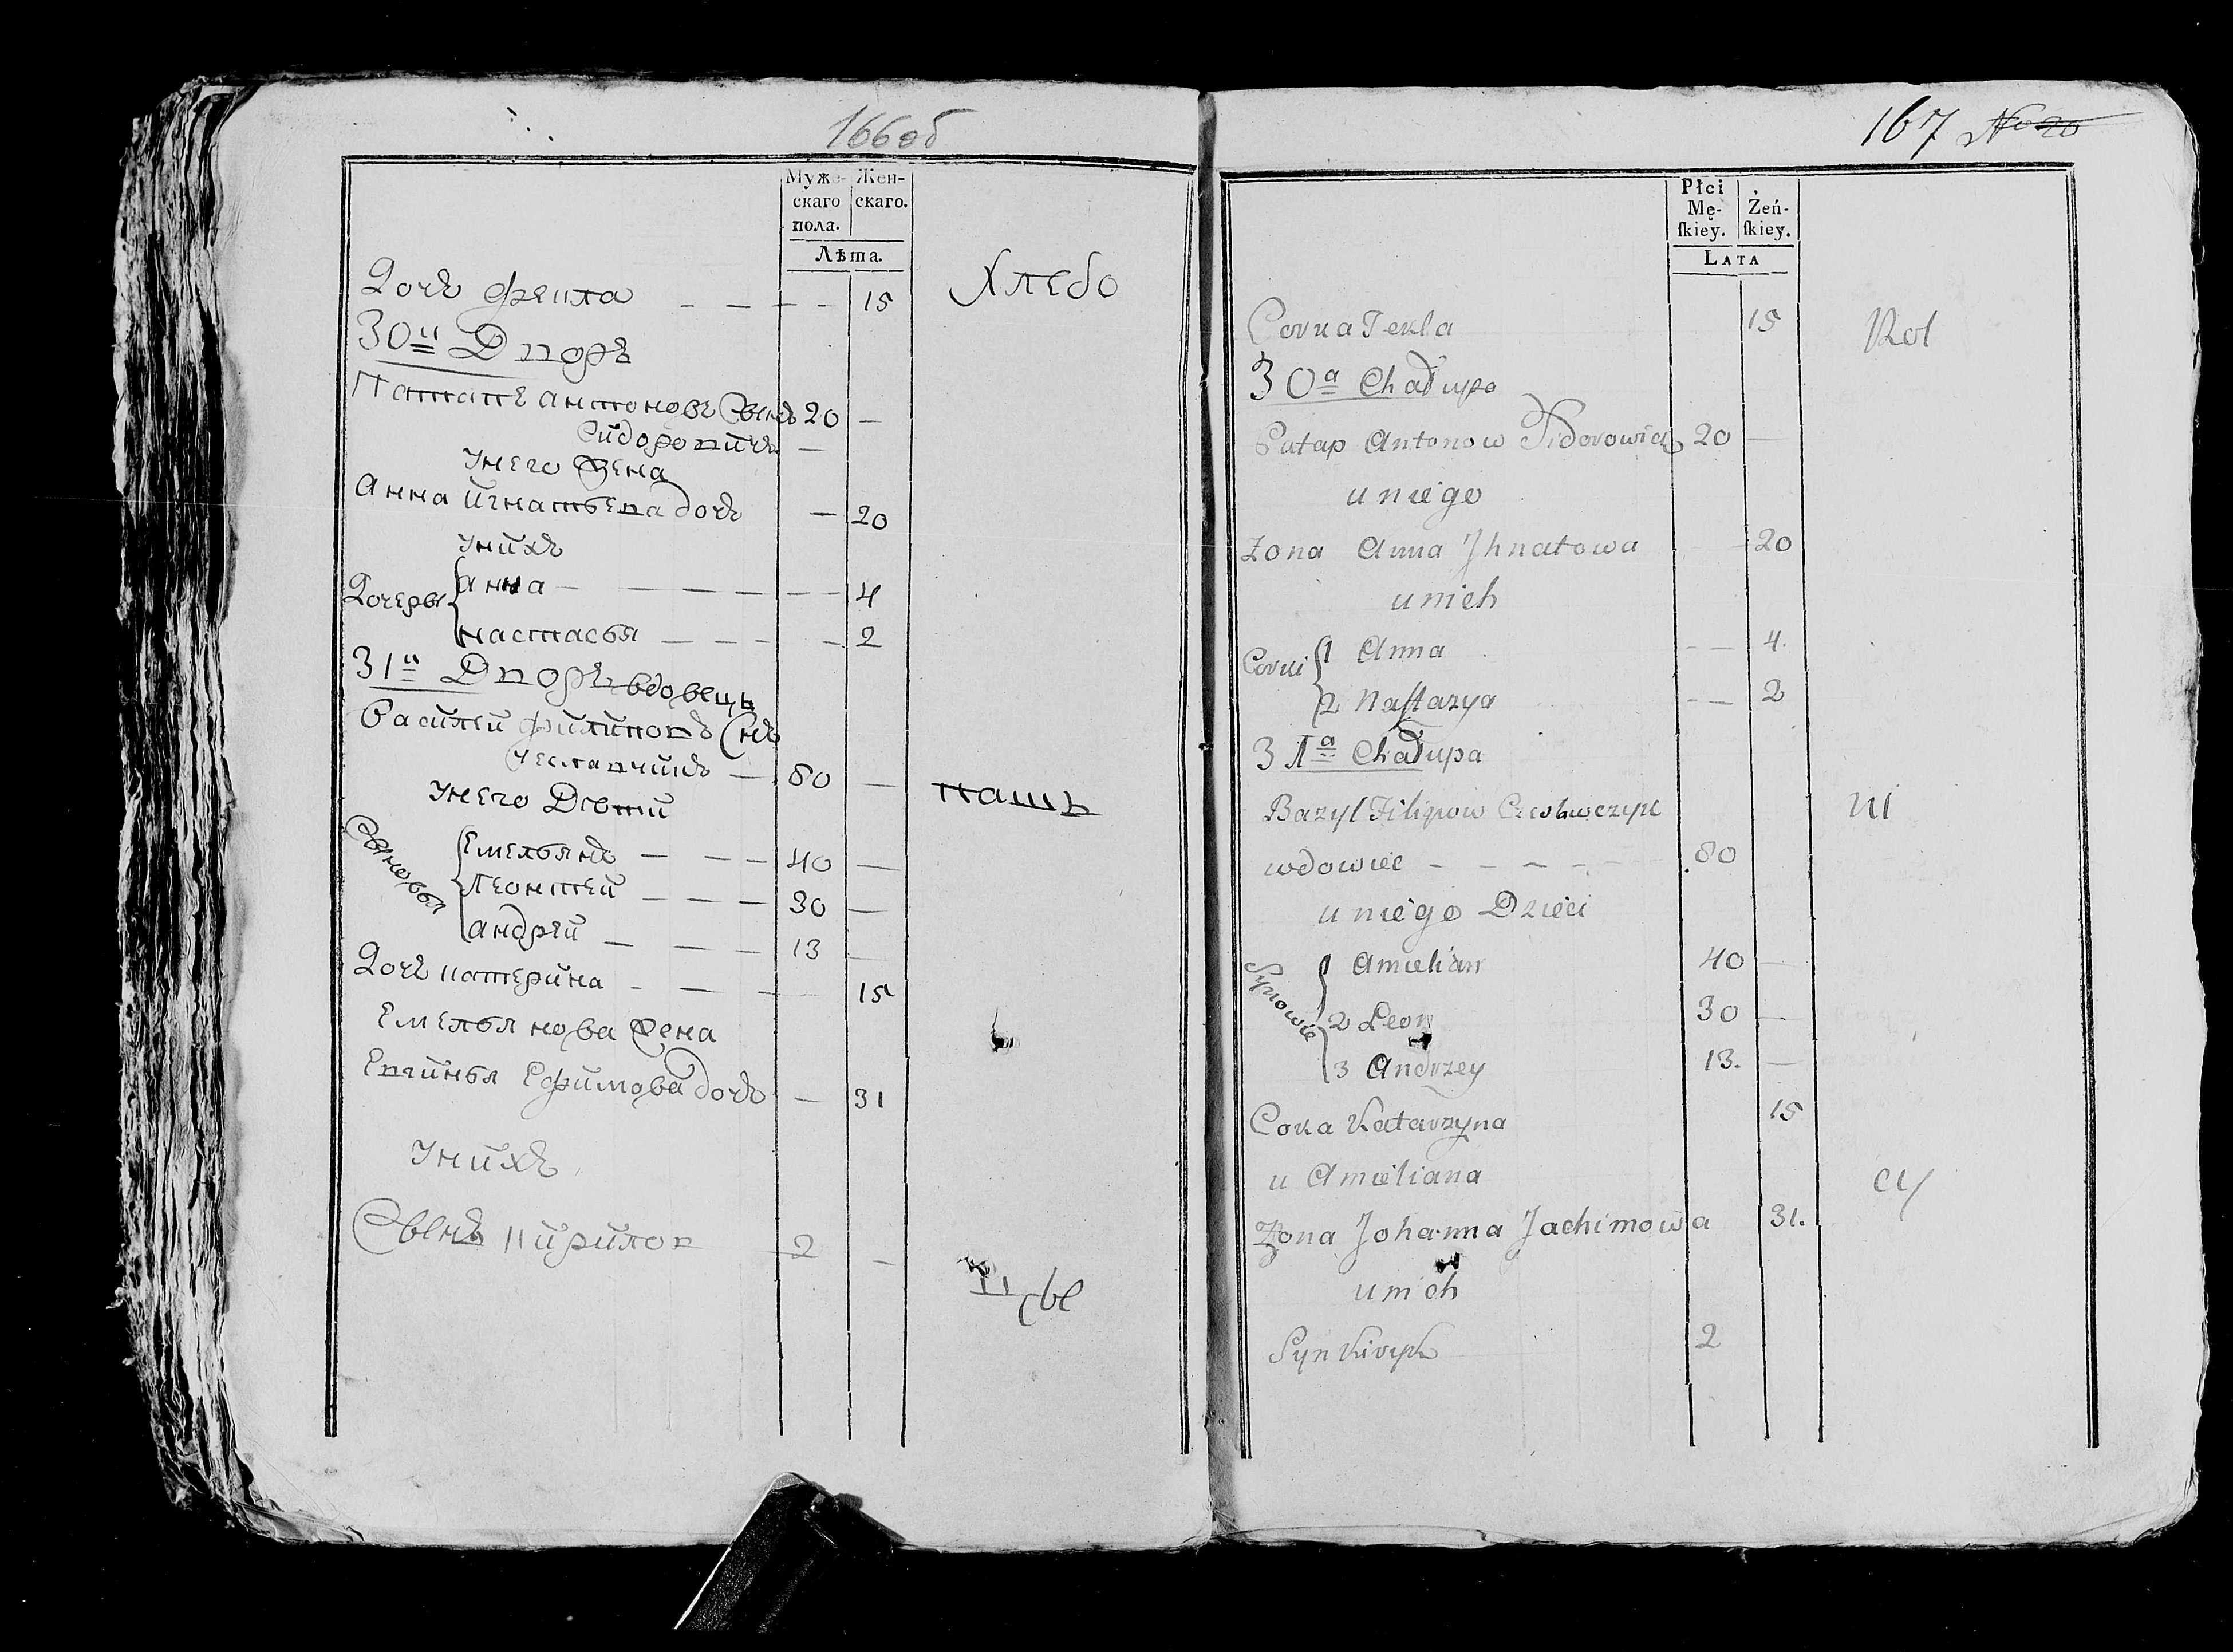 166об
Муже- Жен-
скаго скаго.
пола.
Лѣта.
Дочь Фекла — — — — 15
Хлебо
30й Дворъ
Патапъ Антоновъ Сынъ 20 —
Сидоровичъ —
У него жена
Анна Игнатьева дочь — 20
У нихъ
Дочеры
Анна — — — — — — 4
Настасья — — — — 2
31й Дворъ вдовецъ
Василей Филиповъ Снъ
— 80 —
У него Дѣти
пашъ
Сыновья
Емельянъ — — — 40 —
Леонтей — — — 30 —
Андрей — — — 13 —
Дочь Катерина — — — 15
Емельянова жена
Ефимова дочь — 31
У нихъ
Сынъ Кирилов 2 —
цы
167 No 20
Płci
Mę- Żeń-
ſkiey. ſkiey.
LATA
Corka Tekla 15
Rol
30a Chałupa
Patap Antonow Sidorowicz 20 —
u niego
Zona Anna Jhnatowa — 20
u nich
Corki
1 Anna — — 4.
2 Naſtazya — — 2
31a Chałupa
Bazyl Filipow
ni
wdowiec — — — — — 80
u niego Dzieci
Synowie
1 Amielian 40 —
2 Leon 30 —
3 Andrzey 13. —
Corka Katarzyna 15
u Amieliana
cy
Zona Johanna Jachimowa 31.
u nich
Syn Kiryk 2